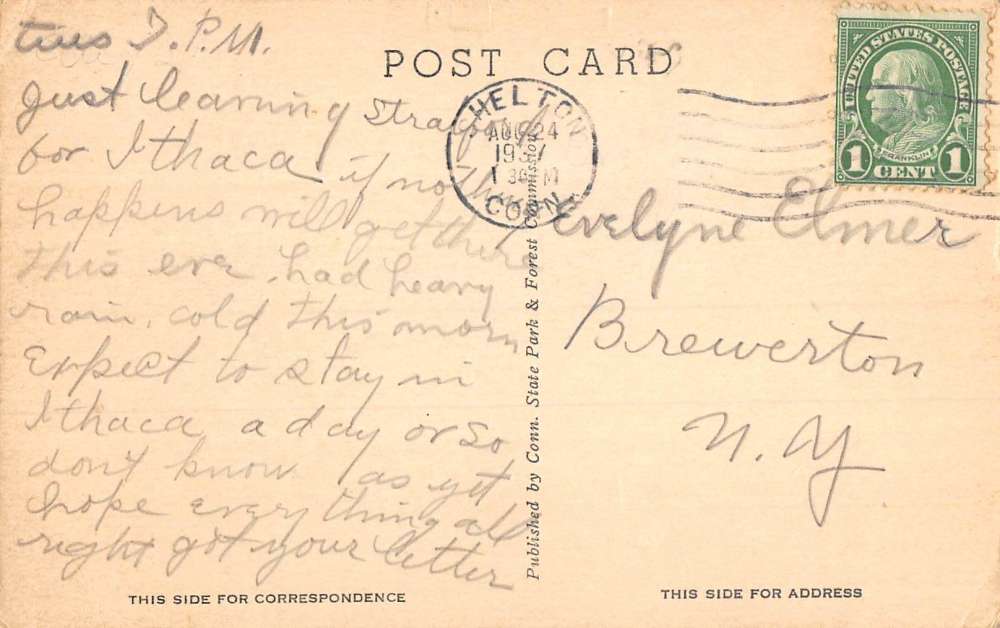 P.M.
Just leaving Stratford
for Ithaca if nothing
happens will get there
this eve. had heavy
rain, cold this morn
Expect to stay in
Ithaca a day or so
don't know as yet
hope every thing all
right got your letter
THIS SIDE FOR CORRESPONDENCE
POST CARD
SHELTON
AUG 24
CONN.
Published by Conn. State Park & Forest Commission
UNITED STATES POSTAGE
FRANKLIN
1 CENT 1
Evelyne Elmer
Brewerton
N. Y
THIS SIDE FOR ADDRESS